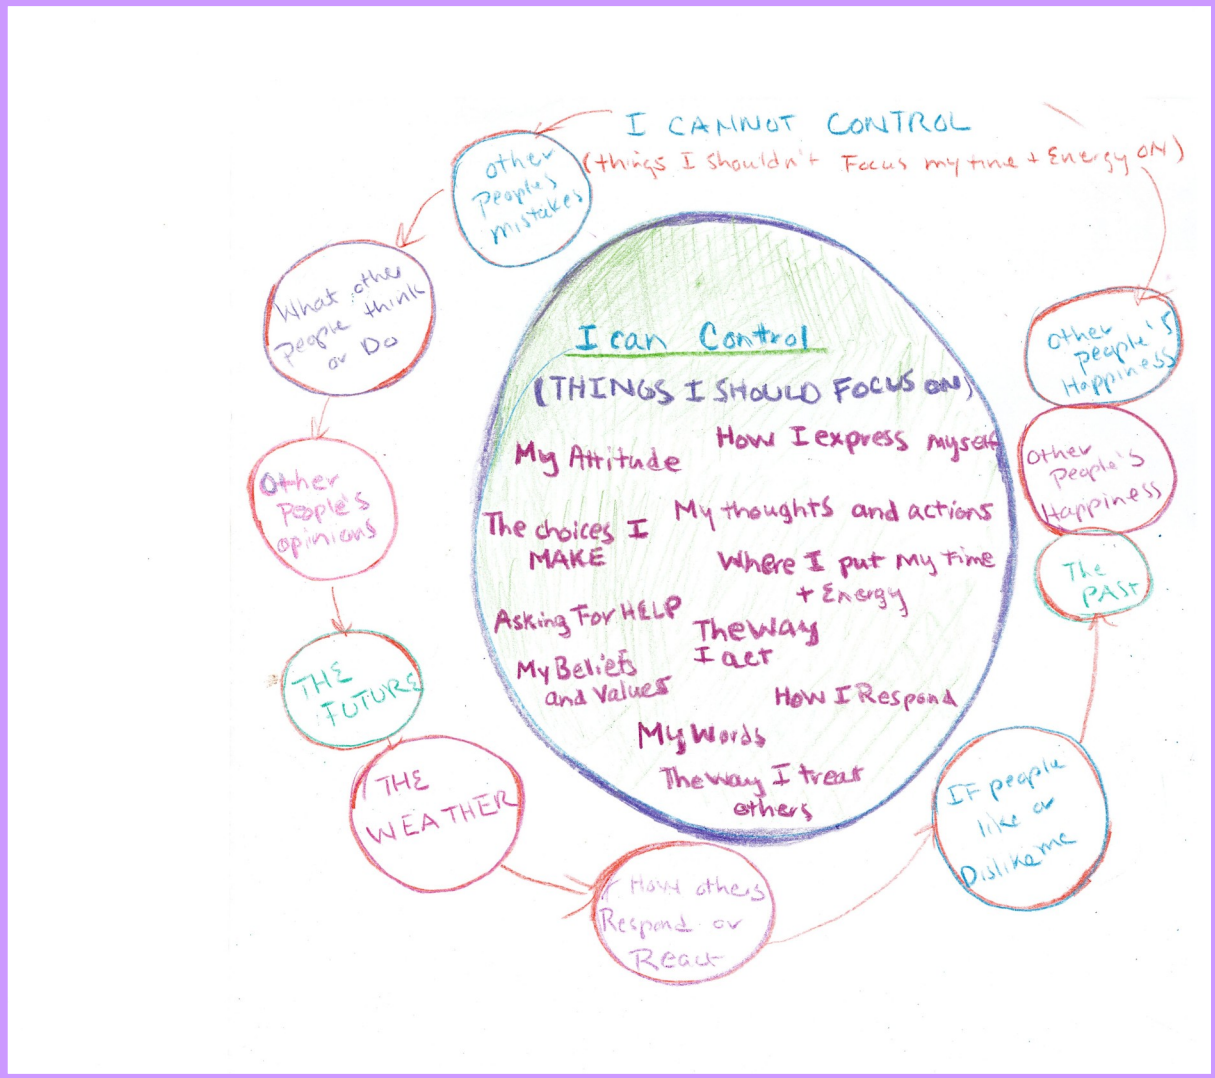 I CANNOT CONTROL
(things I shouldn't Focus my time + Energy ON)
other
People's
mistakes
What other
people think
or Do
Other
People's
opinions
THE
FUTURE
THE
WEATHER
How others
Respond or
React
IF people
like or
Dislike me
The
PAST
Other
People's
Happiness
Other
People's
Happiness
I can Control
(THINGS I SHOULD FOCUS ON)
My Attitude
How I express myself
The choices I
MAKE
My thoughts and actions
Where I put My time
+ Energy
Asking For HELP
The way
I act
My Beliefs
and Values
How I Respond
My Words
The way I treat
others